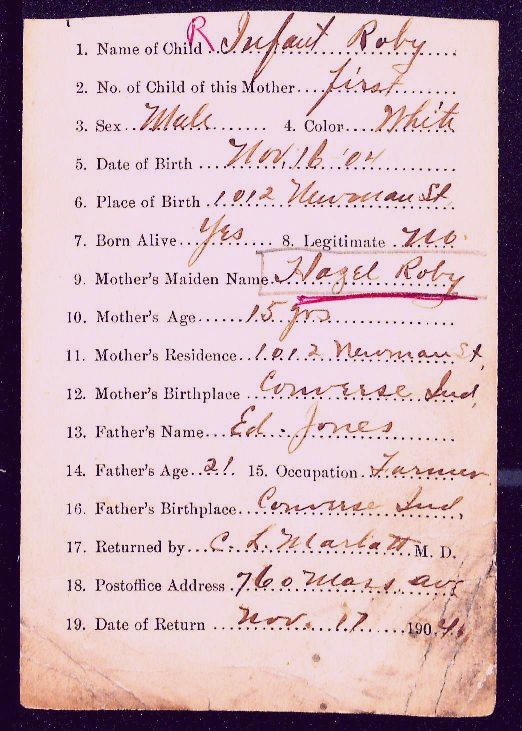 R
1. Name of Child Infant Roby
2. No. of Child of this Mother first
3. Sex Male 4. Color White
5. Date of Birth Nov. 16 '04
6. Place of Birth 1012 Newman St.
7. Born Alive Yes 8. Legitimate No.
9. Mother's Maiden Name Hazel Roby
10. Mother's Age 15 yrs
11. Mother's Residence 1012 Newman St.
12. Mother's Birthplace Converse Ind.
13. Father's Name Ed. Jones
14. Father's Age 21 15. Occupation Farmer
16. Father's Birthplace Converse Ind.
17. Returned by C. L. Marlatt M. D.
18. Postoffice Address 760 Mass. ave
19. Date of Return Nov. 17 1904.